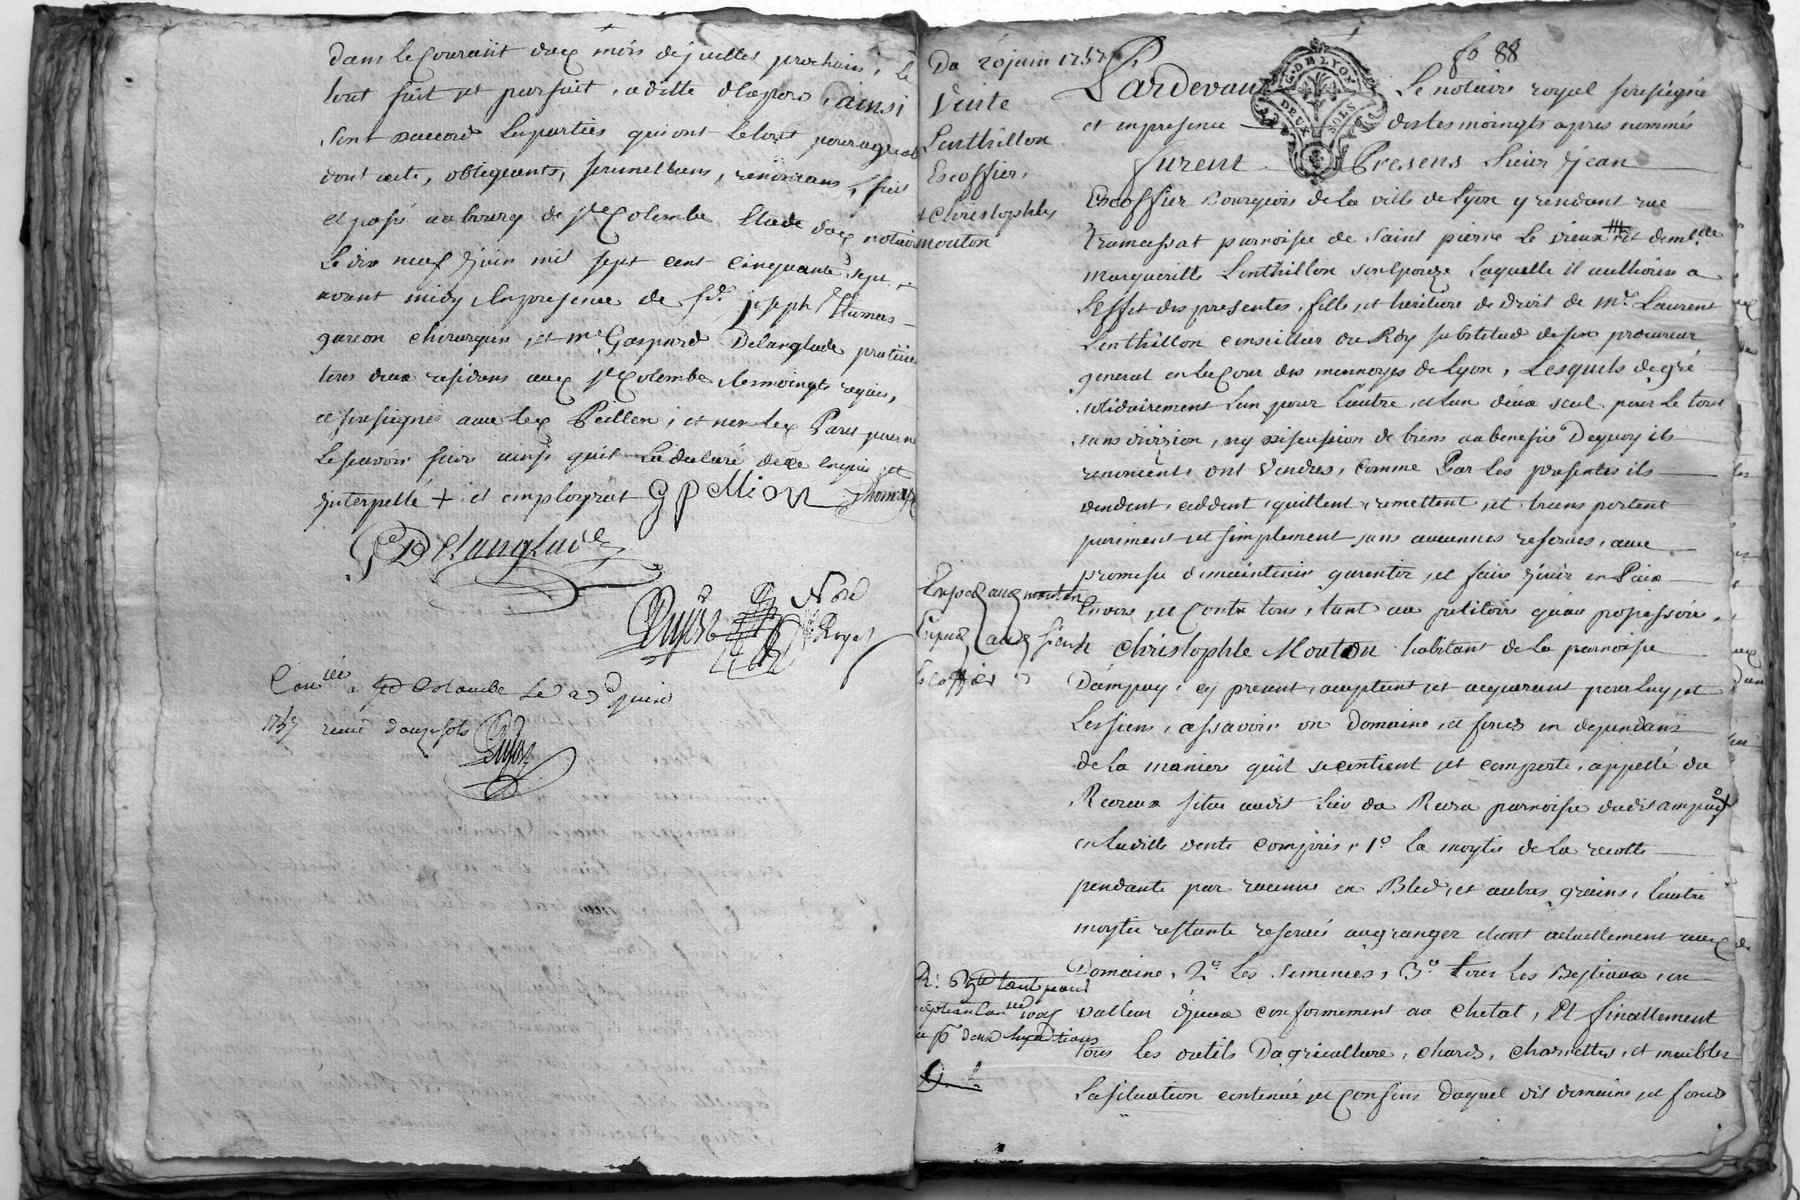 dans le Courant dud mois de juillet prochain, le
tout fait et parfait, a ditte d'experts, ainsi
sont d'accord les parties qui ont le tout pour agreable
dont acte, obligeants, soumettans, renoncans, fait
et passé au bourg de Ste Colombe Etude dud notaire
Le dix neuf juin mil sept cent cinquante sept
avant midy, En presence de Sr joseph Thumas
garcon chirurgien, et Me Gaspard Delanglade praticien
tous deux residans aud Ste Colombe, temoingts requis,
et soussignés avec led Pellion, et non led Paret pour ne
le scavoir faire ainsi quil la declaré de ce enquis et
interpellé + et employent g pellion Thomas
G Delanglade
Dujast Nore Royal
Con lée a Ste Colombe Le 20 juin
1757 reçu douze sols
Dujast
Du 20 juin 1757
Vente
Lenthillon
Escoffier,
à Christophle
mouton
fo 88
G. DE LYON
DEUX SOLS
Pardevant Le notaire royal soussigné
et en presence des tesmoingts apres nommés
Furent Presens Sieur Jean
Escoffier Bourgeois de la ville de Lyon y rendant rue
Tramassat parroisse de Saint pierre Le vieux et demlle
Margueritte Lenthillon son Epouze Laquelle il authorise a
L'Effet des presentes, fille, et heritiere de droit de Mr. Laurent
Lenthillon conseiller du Roy substitud de son procureur
general en la Cour des monnoyes de Lyon, Lesquels de gré
solidairement Lun pour Lautre, et lun deux seul pour Le tout
sans division, ny discussion de biens au benefice Dequoy ils
renoncent, ont Vendus, comme Par Les presentes ils
vendent, ceddent, quittent, remettent, et transportent
purement et simplement sans aucunnes reserves, avec
promesse de maintenir garentir, et faire jouir en Paix
Envers, et Contre tous, tant au petitoir qu'au possessoir,
à Christophle Mouton habitant de la parroisse
D'ampuy, cy present, acceptant et acquerant pour luy, et
Les siens, assavoir un Domaine, et fonds en dependans
de La manier quil se contient et comporte, appellé du
Rozeaux situé audit Lieu du Roza parroisse dudit ampuis
en Laditte vente compris, 1o La moytié de La recolte
pendante par racinne en Bled, et autres grains, l'autre
moytié restante reservée au granger etant actuellement aud
Domaine, 2o. Les semences, 3o. tous Les Bestiaux, en
valleur d'iceux conformement au chetal, Et finallement
tous Les outils D'agriculture, chars, charettes, et meubles
La situation contenue, et Confins Duquel dit domaine, et fonds
Exped aud mouton
Exped aud sieur
Escoffier